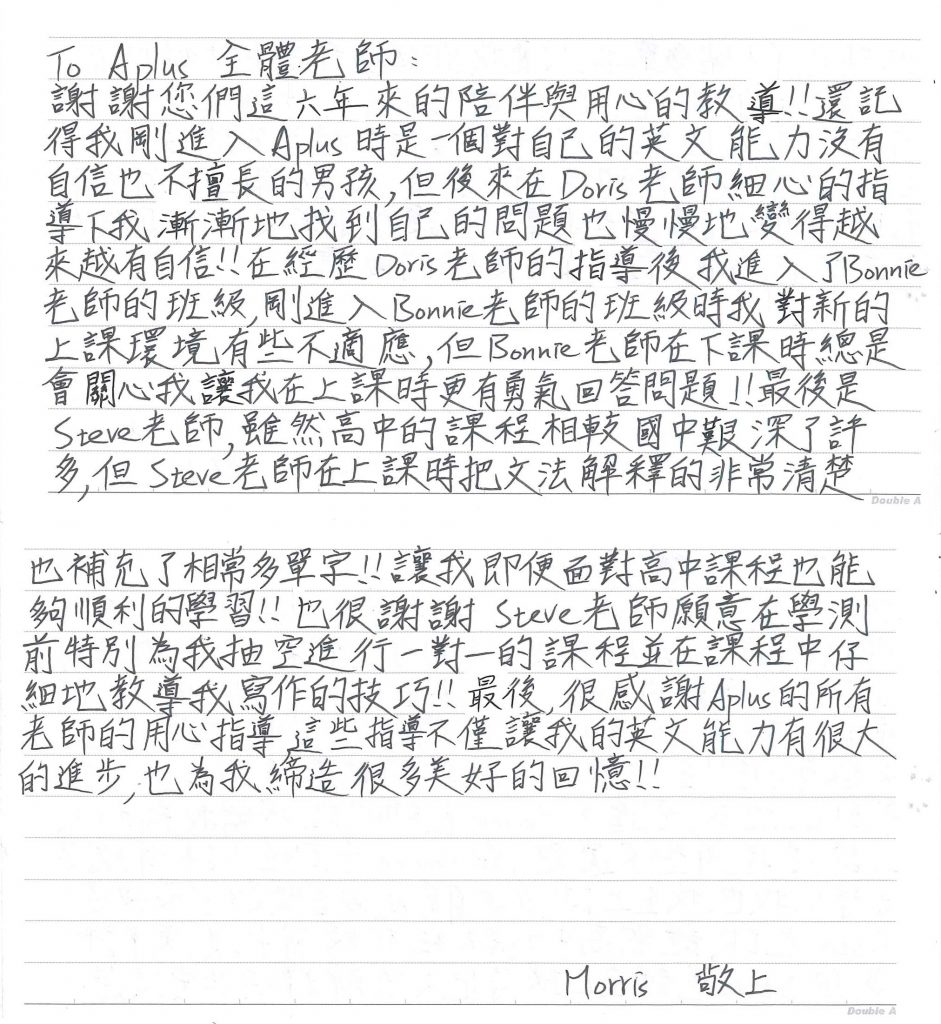 To Aplus 全體老師:
謝謝您們這六年來的陪伴與用心的教導!!還記
得我剛進入Aplus時是一個對自己的英文能力沒有
自信也不擅長的男孩,但後來在Doris老師細心的指
導下我漸漸地找到自己的問題也慢慢地變得越
來越有自信!!在經歷Doris老師的指導後我進入了Bonnie
老師的班級,剛進入Bonnie老師的班級時我對新的
上課環境有些不適應,但Bonnie老師在下課時總是
會關心我讓我在上課時更有勇氣回答問題!!最後是
Steve老師,雖然高中的課程相較國中艱深了許
多,但Steve老師在上課時把文法解釋的非常清楚
Double A
也補充了相當多單字!!讓我即便面對高中課程也能
夠順利的學習!!也很謝謝Steve老師願意在學測
前特別為我抽空進行一對一的課程並在課程中仔
細地教導我寫作的技巧!!最後,很感謝Aplus的所有
老師的用心指導這些指導不僅讓我的英文能力有很大
的進步,也為我締造很多美好的回憶!!
Morris 敬上
Double A